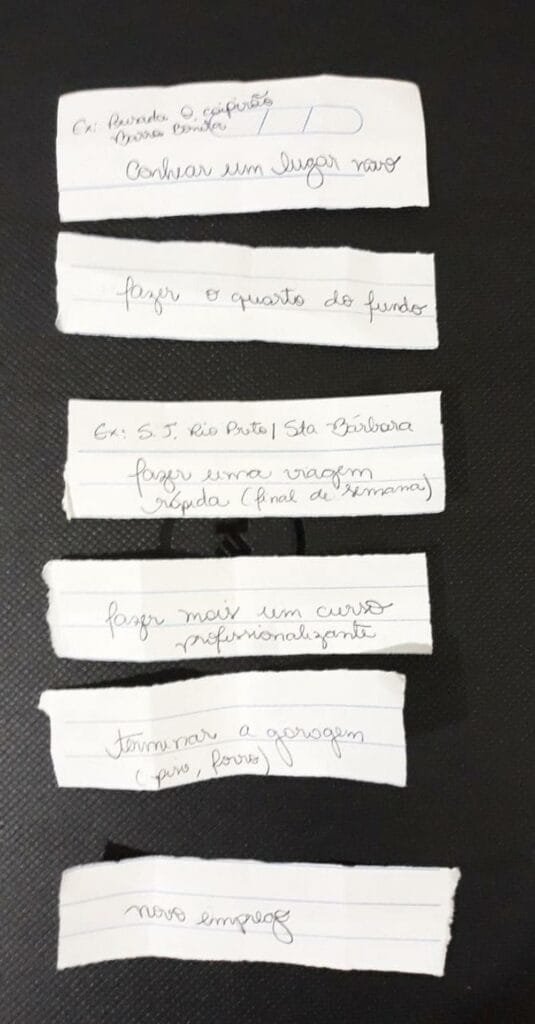 Ex: Parada O caipirão
Barra Bonita
Conhecer um lugar novo
fazer o quarto do fundo
Ex: S. J. Rio Preto / Sta Bárbara
fazer uma viagem
rápida (final de semana)
fazer mais um curso
profissionalizante
terminar a garagem
(piso, forro)
novo emprego